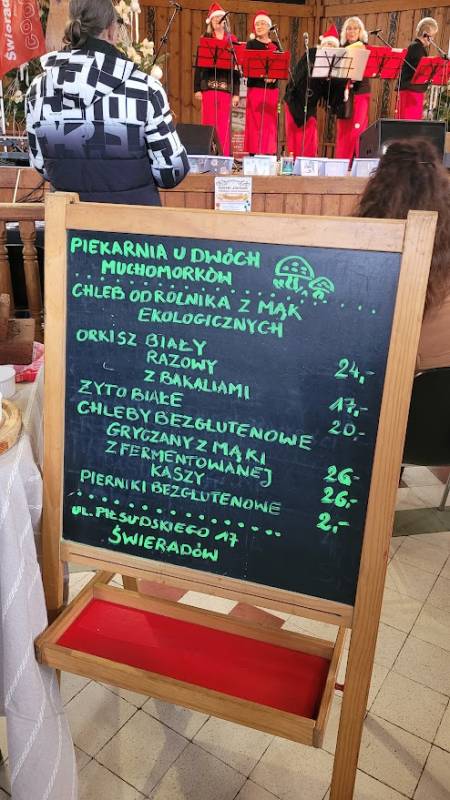 Świerad
PIEKARNIA U DWÓCH
MUCHOMORKÓW
CHLEB OD ROLNIKA Z MĄK
EKOLOGICZNYCH
ORKISZ BIAŁY
RAZOWY 24,-
Z BAKALIAMI
ŻYTO BIAŁE 17,-
CHLEBY BEZGLUTENOWE 20,-
GRYCZANY Z MĄKI
Z FERMENTOWANEJ 26,-
KASZY 26,-
PIERNIKI BEZGLUTENOWE 2,-
UL. PIŁSUDSKIEGO 17
ŚWIERADÓW